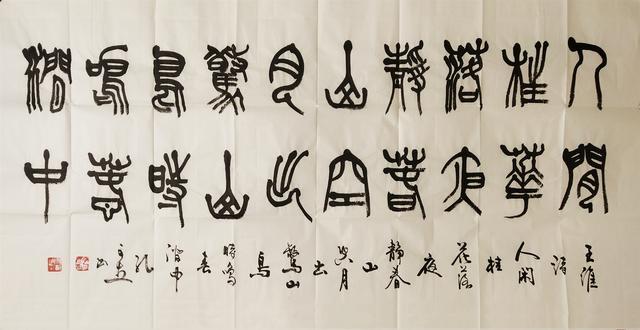 人閒
桂華
落夜
靜春
山空
月出
驚山
鳥時
鳴春
澗中
王維
詩
人闲
桂
花落
夜
靜春
山
空月
出
驚山
鳥
時鳴
春
澗中